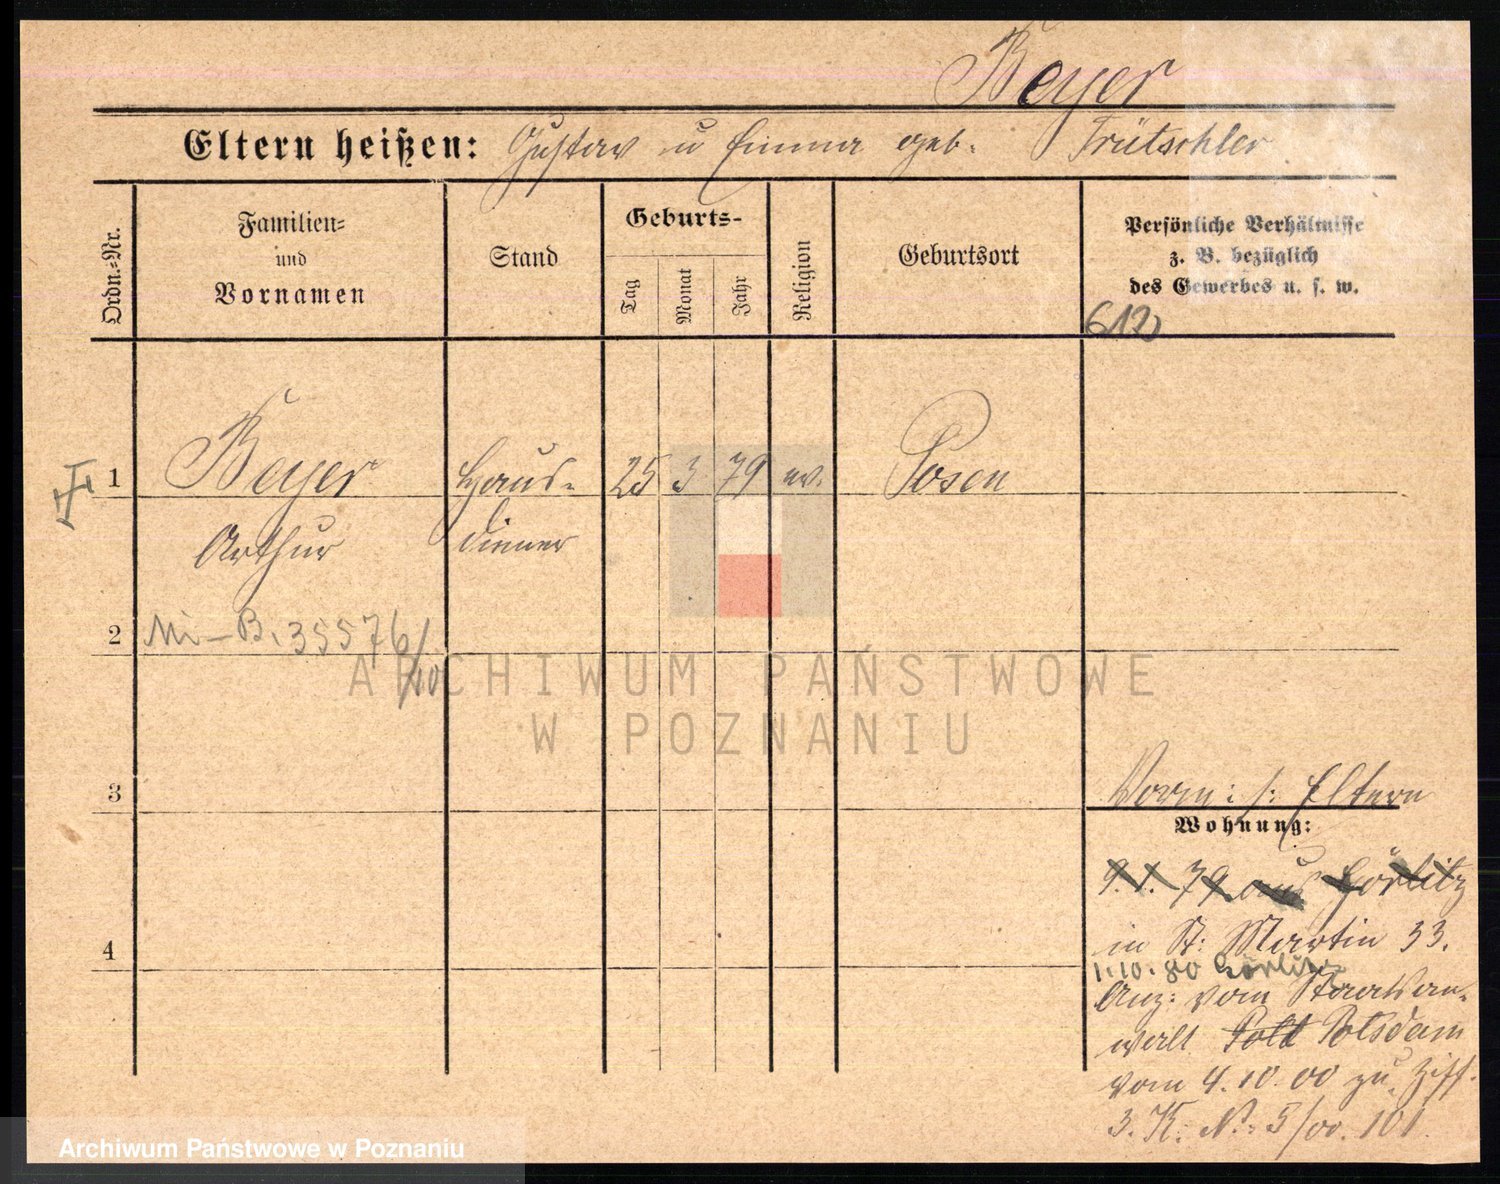 Beyer
Eltern heißen: Gustav u Emma geb. Trütschler
Ordn.=Nr.
Familien=
und
Vornamen
Stand
Geburts-
Tag
Monat
Jahr
Religion
Geburtsort
Persönliche Verhältnisse
z. B. bezüglich
des Gewerbes u. s. w.
612
1 Beyer Haus- 25 3 79 ev. Posen
Arthur diener
2 Mi-B. 35576/10
3
Vorm: s: Eltern
Wohnung:
9. 1. 79 aus Görlitz
in St: Martin 33.
4
1.10.80 Görlitz
Anz: vom Staatsan-
walt Potsdam
vom 4.10.00 zu Ziff.
3. K: No: 5/00. 101.
ARCHIWUM PAŃSTWOWE
W POZNANIU
Archiwum Państwowe w Poznaniu